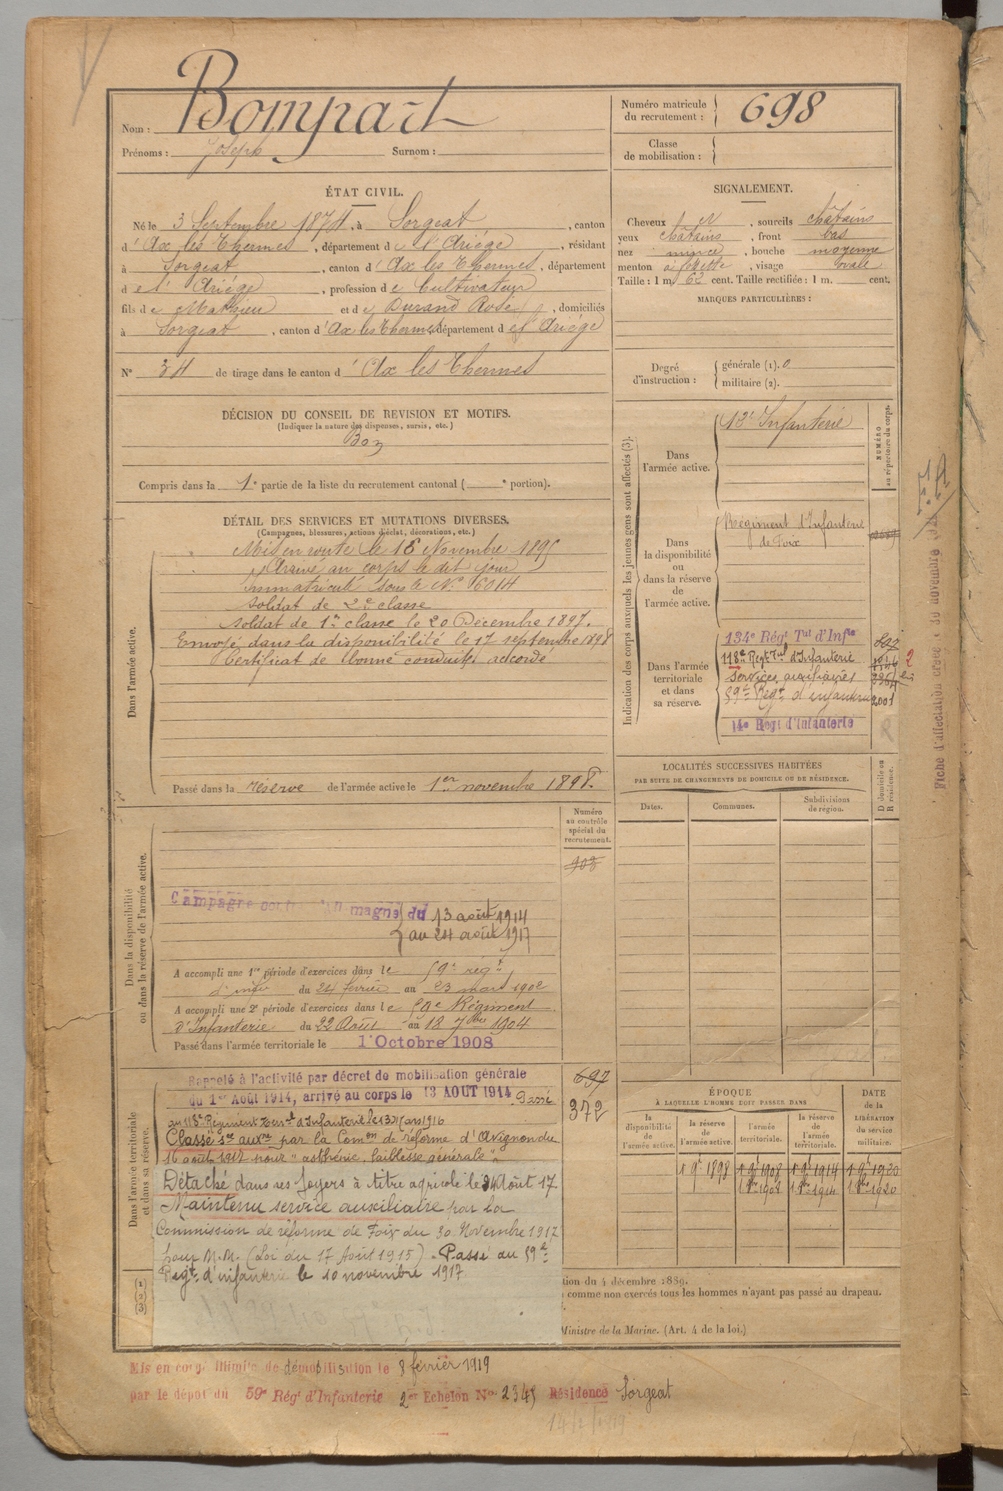 Nom : Bompart
Prénoms : Joseph Surnom :
Numéro matricule du recrutement : 698
Classe de mobilisation :
ÉTAT CIVIL.
Né le 3 Septembre 1874, à Sorgeat, canton
d'Ax les Thermes, département de l'Ariège, résidant
à Sorgeat, canton d'Ax les Thermes, département
de l'Ariège, profession de Cultivateur
fils de Mathieu et de Durand Rose, domiciliés
à Sorgeat, canton d'Ax les Thermes, département de l'Ariège
N° 34 de tirage dans le canton d'Ax les Thermes
SIGNALEMENT.
Cheveux et, sourcils châtains
yeux châtains, front bas
nez mince, bouche moyenne
menton à fossette, visage ovale
Taille : 1 m. 62 cent. Taille rectifiée : 1 m. cent.
MARQUES PARTICULIÈRES :
Degré d'instruction : générale (1). 0
militaire (2).
DÉCISION DU CONSEIL DE REVISION ET MOTIFS.
(Indiquer la nature des dispenses, sursis, etc.)
Bon
Compris dans la 1e partie de la liste du recrutement cantonal ( e portion).
DÉTAIL DES SERVICES ET MUTATIONS DIVERSES.
(Campagnes, blessures, actions d'éclat, décorations, etc.)
Dans l'armée active.
Mis en route le 16 Novembre 1895
Arrivé au corps le dit jour
Immatriculé sous le N° 6014
Soldat de 2e classe
Soldat de 1re classe le 20 Décembre 1897.
Envoyé dans la disponibilité le 17 septembre 1898
Certificat de bonne conduite accordé
Passé dans la réserve de l'armée active le 1er novembre 1898.
Indication des corps auxquels les jeunes gens sont affectés (3).
NUMÉRO au répertoire du corps.
Dans l'armée active.
Infanterie
Dans la disponibilité ou dans la réserve de l'armée active.
Régiment d'Infanterie
de Foix
Dans l'armée territoriale et dans sa réserve.
134e Régt Tal d'Infie
118e Regt Tal d'Infanterie
Services auxiliaires
59e Regt d'infanterie 2001
14e Regt d'Infanterie
R
LOCALITÉS SUCCESSIVES HABITÉES
PAR SUITE DE CHANGEMENTS DE DOMICILE OU DE RÉSIDENCE.
Dates. Communes. Subdivisions de région. D domicile ou R résidence.
Dans la disponibilité ou dans la réserve de l'armée active.
Numéro au contrôle spécial du recrutement.
Campagne du 13 août 1914
au 24 août 1917
A accompli une 1re période d'exercices dans le 59e régt
d'infie du 24 février au 23 mars 1902
A accompli une 2e période d'exercices dans le 59e Régiment
d'Infanterie du 22 Août au 18 7bre 1904
Passé dans l'armée territoriale le 1 Octobre 1908
Dans l'armée territoriale et dans sa réserve.
Rappelé à l'activité par décret de mobilisation générale
du 1er Août 1914, arrivé au corps le 13 AOUT 1914. Passé
au 118e Régiment Territ. d'Infanterie le 13 Mars 1916
Classé sce auxre par la Comon de réforme d'Avignon du
16 août 1917 pour "asthénie, faiblesse générale".
Détaché dans ses foyers à titre agricole le 24 Août 17
Maintenu service auxiliaire par la
Commission de réforme de Foix du 30 Novembre 1917
pour M.M. (Loi du 17 Août 1915) - Passé au 59e
Régt d'infanterie le 10 novembre 1917
697
372
ÉPOQUE
À LAQUELLE L'HOMME DOIT PASSER DANS
la disponibilité de l'armée active. la réserve de l'armée active. l'armée territoriale. la réserve de l'armée territoriale.
DATE de la LIBÉRATION du service militaire.
1 9e 1898 1 9e 1908 1 9e 1914 1 9e 1920
1 8bre 1908 1 8bre 1914 1 8bre 1920
tion du 4 décembre 1889.
comme non exercés tous les hommes n'ayant pas passé au drapeau.
Ministre de la Marine. (Art. 4 de la loi.)
Mis en congé illimité de démobilisation le 8 février 1919
par le dépôt du 59e Régt d'Infanterie 2e Echelon No 2345 Résidence Sorgeat
Fiche d'affectation